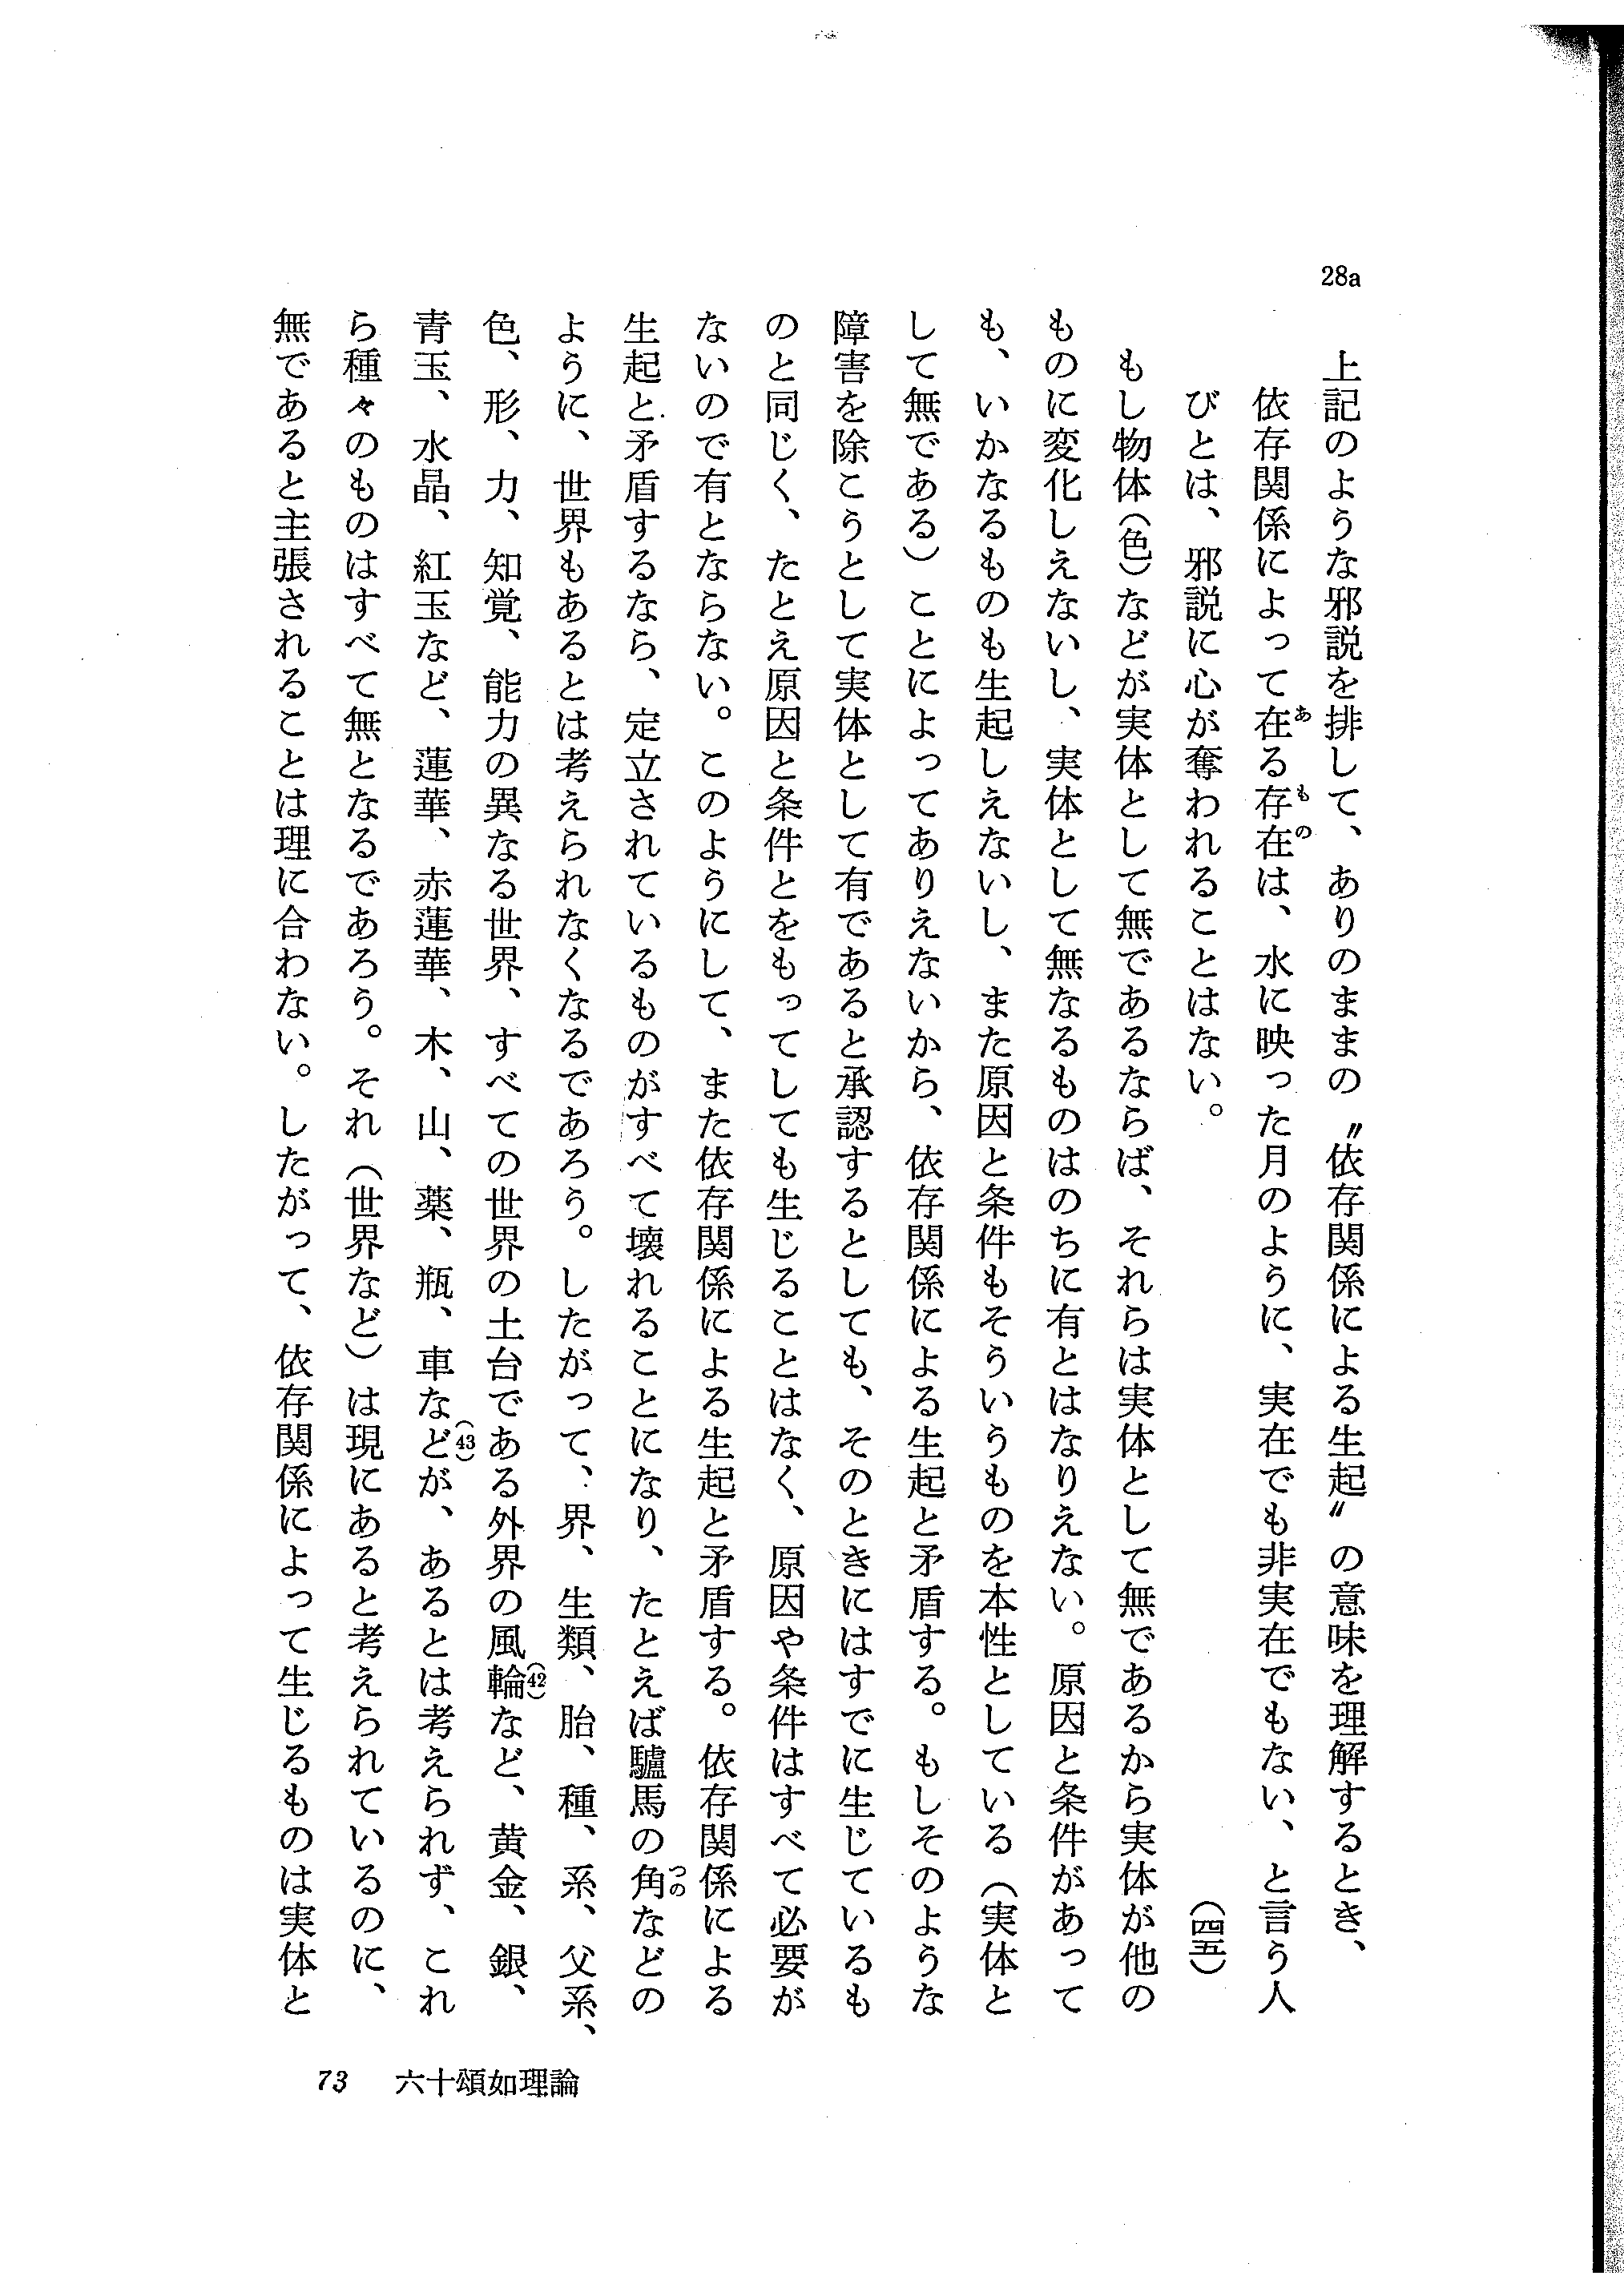 28a
上記のような邪説を排して、ありのままの〝依存関係による生起〟の意味を理解するとき、
依存関係によって在る存在は、水に映った月のように、実在でも非実在でもない、と言う人
びとは、邪説に心が奪われることはない。（四五）
もし物体（色）などが実体として無であるならば、それらは実体として無であるから実体が他の
ものに変化しえないし、実体として無なるものはのちに有とはなりえない。原因と条件があって
も、いかなるものも生起しえないし、また原因と条件もそういうものを本性としている（実体と
して無である）ことによってありえないから、依存関係による生起と矛盾する。もしそのような
障害を除こうとして実体として有であると承認するとしても、そのときにはすでに生じているも
のと同じく、たとえ原因と条件とをもってしても生じることはなく、原因や条件はすべて必要が
ないので有とならない。このようにして、また依存関係による生起と矛盾する。依存関係による
生起と矛盾するなら、定立されているものがすべて壊れることになり、たとえば驢馬の角などの
ように、世界もあるとは考えられなくなるであろう。したがって、界、生類、胎、種、系、父系、
色、形、力、知覚、能力の異なる世界、すべての世界の土台である外界の風輪(42)など、黄金、銀、
青玉、水晶、紅玉など、蓮華、赤蓮華、木、山、薬、瓶、車など(43)が、あるとは考えられず、これ
ら種々のものはすべて無となるであろう。それ（世界など）は現にあると考えられているのに、
無であると主張されることは理に合わない。したがって、依存関係によって生じるものは実体と
73 六十頌如理論